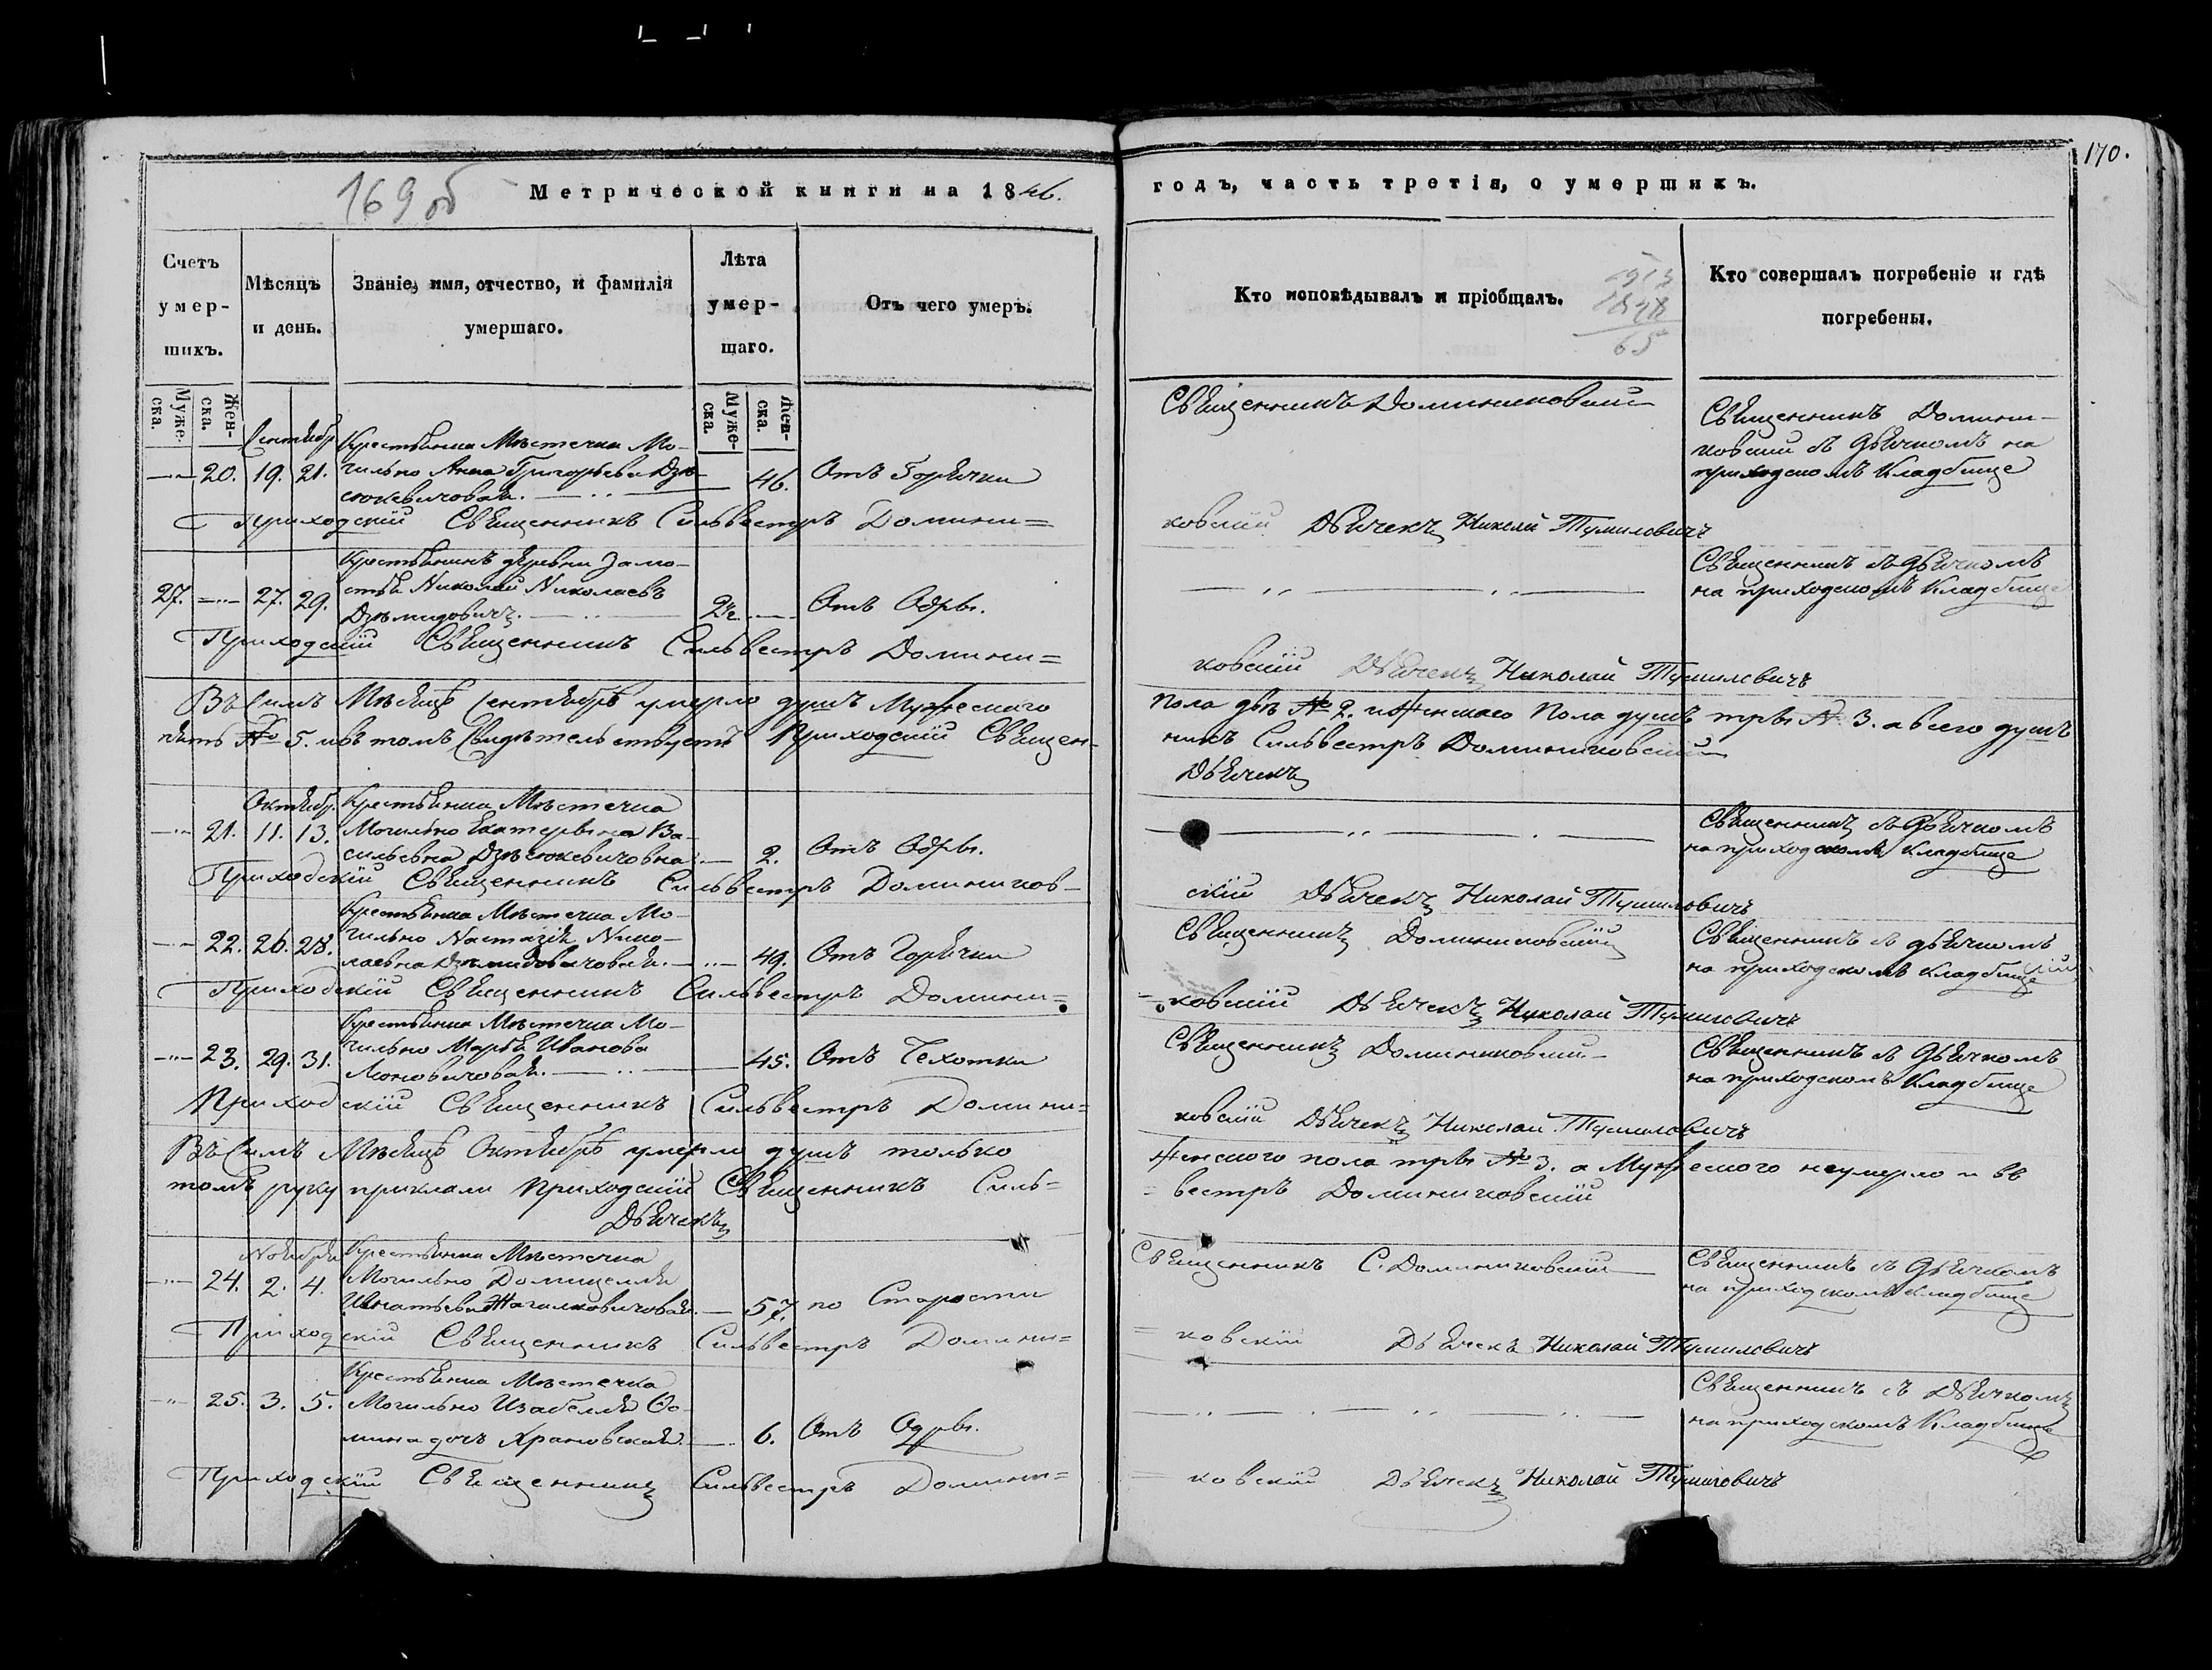 170.
169 об
Метрической книги на 1846.
годъ, часть третія, о умершихъ.
Счетъ умер-шихъ.
Мѣсяцъ и день.
Званіе, имя, отчество, и фамилія умершаго.
Лѣта умер-шаго.
Отъ чего умеръ.
Кто исповѣдывалъ и пріобщалъ.
Кто совершалъ погребеніе и гдѣ погребены.
1913
1848
65
Муже-ска. Жен-ска.
Муже-ска. Жен-ска.
Сентябр
20. 19. 21.
Крестьянка Мѣстечка Мо-
гильно Анна Григорьева
46. Отъ Горячки
Священникъ Доминиковскій
Священникъ Домини-
ковскій съ дьячкомъ на
приходскомъ Кладбище
Приходскій Священникъ Сильвестръ Домини=
ковскій Дьячекъ Николай Тумиловичъ
27. 27. 29.
Крестьянинъ деревни Замо-
стья Николай Николаевъ
Дземидовичъ.
Отъ Одры.
Священникъ съ дьячкомъ
на приходскомъ Кладбище
Приходскій Священникъ Сильвестръ Домини=
ковскій Дьячекъ Николай Тумиловичъ
Въ Симъ Мѣсяцѣ Сентябрѣ умерло душъ Мужескаго
Пола двѣ № 2. и Женскаго Пола душъ три № 3. а всего душъ
пять № 5. и въ томъ Свидѣтельствуетъ Приходскій Священ-
никъ Сильвестръ Доминиковскій
Дьячекъ
Октябр.
21. 11. 13.
Крестьянка Мѣстечка
Могильно Екатерына Ва-
сильевна
2. Отъ Одры.
Священникъ съ Дьячкомъ
на приходскомъ Кладбище
Приходскій Священникъ Сильвестръ Домиников-
скій Дьячекъ Николай Тумиловичъ
22. 26. 28.
Крестьянка Мѣстечка Мо-
гильно Настазія Нико-
лаевна Дземидовичовая.
49. Отъ Горячки
Священникъ Доминиковскій
Священникъ съ дьячкомъ
на приходскомъ Кладбище
Приходскій Священникъ Сильвестръ Домини=
=ковскій Дьячекъ Николай Тумиловичъ
23. 29. 31.
Крестьянка Мѣстечка Мо-
гильно Марья Иванова
45. Отъ Сехотки
Священникъ Доминиковскій
Священникъ съ Дьячкомъ
на приходскомъ Кладбище
Приходскій Священникъ Сильвестръ Домини=
ковскій Дьячекъ Николай Тумиловичъ
Въ Симъ Мѣсяцѣ Октябрѣ умерло душъ только
Женского пола тры № 3. а Мужеского неумерло и въ
томъ руку приклали Приходскій Священникъ Силь=
=вестръ Доминиковскій
Дьячекъ
Ноября
24. 2. 4.
Крестьянка Мѣстечка
Могильно Домицелля
57. по Старости
Священникъ С. Доминиковскій
Священникъ съ Дьячкомъ
на приходскомъ Кладбище
Приходскій Священникъ Сильвестръ Домини=
=ковскій Дьячекъ Николай Тумиловичъ
25. 3. 5.
Крестьянка Мѣстечка
Могильно Изабелля Ѳо-
мина дочь Храновская.
6. Отъ Одры.
Священникъ съ Дьячкомъ
на приходскомъ Кладбище
Приходскій Священникъ Сильвестръ Домини=
ковскій Дьячекъ Николай Тумиловичъ